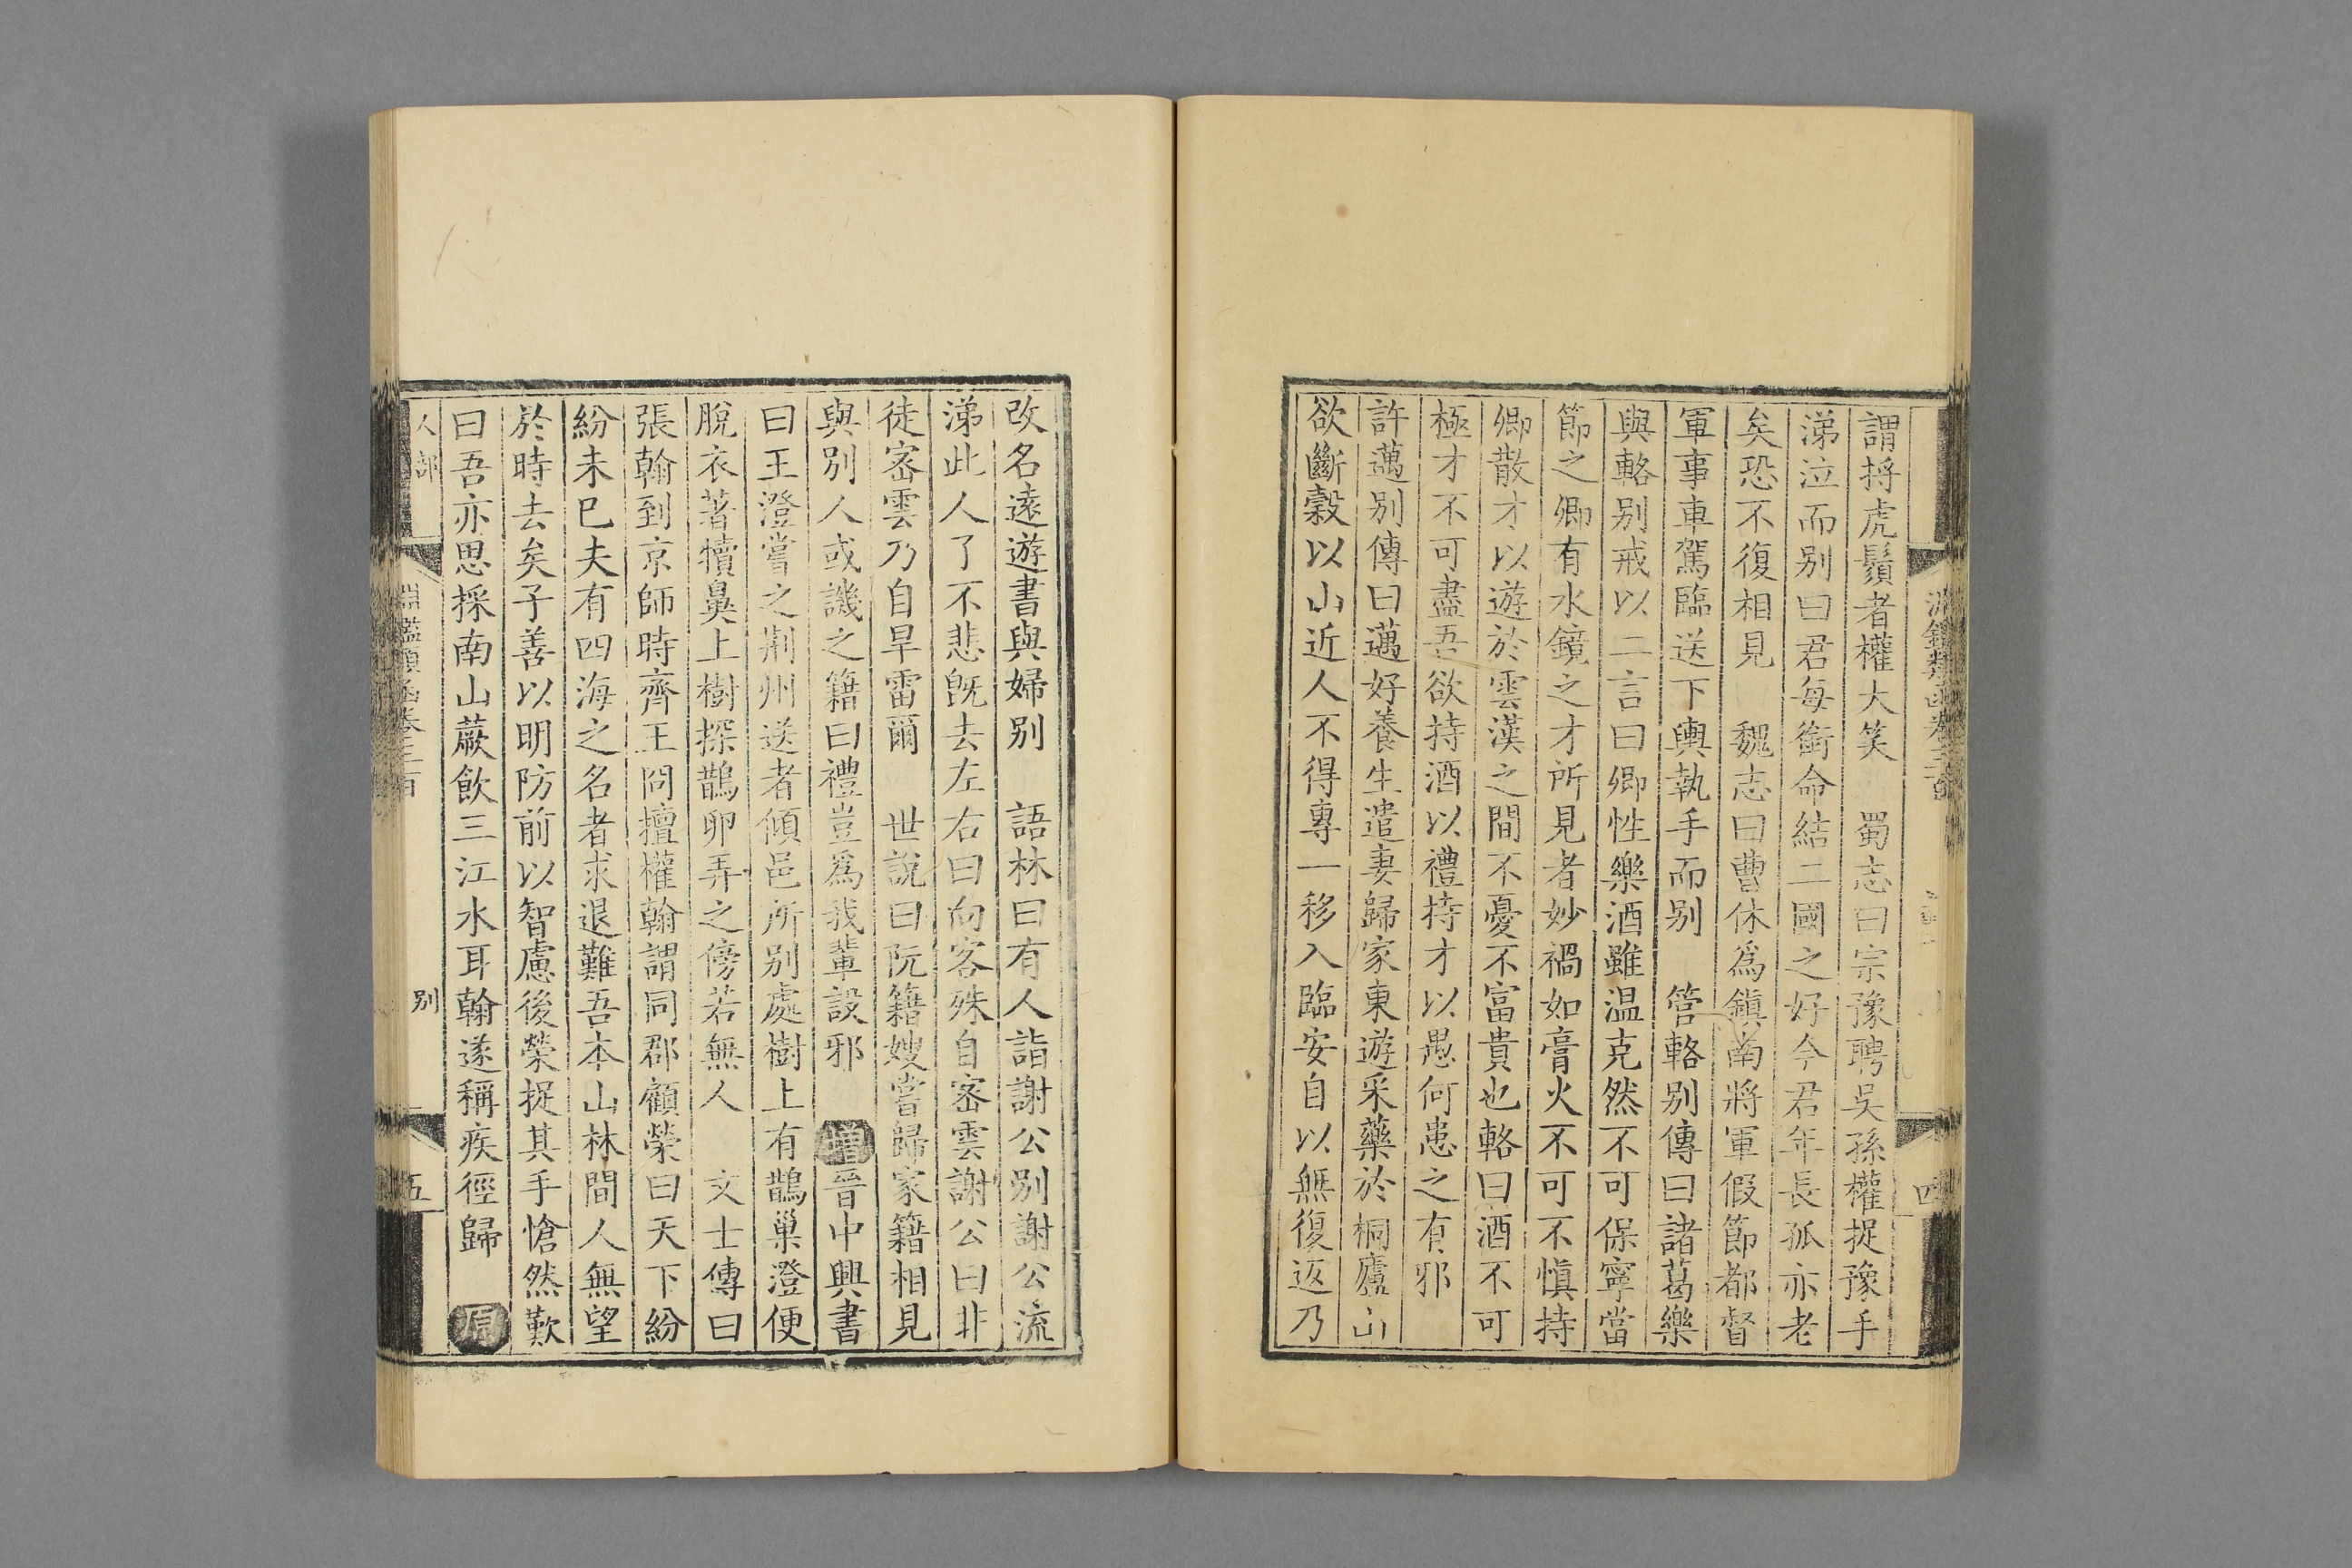 謂捋虎鬚者權大笑　蜀志曰宗豫聘吳孫權捉豫手
涕泣而别曰君每銜命結二國之好今君年長孤亦老
矣恐不復相見　魏志曰曹休爲鎭南將軍假節都督
軍事車駕臨送下輿執手而别　管輅别傳曰諸葛樂
與輅别戒以二言曰卿性樂酒雖温克然不可保寧當
節之卿有水鏡之才所見者妙禍如膏火不可不愼持
卿散才以遊於雲漢之間不憂不富貴也輅曰酒不可
極才不可盡吾欲持酒以禮持才以愚何患之有邪
許邁别傳曰邁好養生遣妻歸家東遊采藥於桐廬山
欲斷穀以山近人不得專一移入臨安自以無復返乃
改名遠遊書與婦别　語林曰有人詣謝公别謝公流
涕此人了不悲旣去左右曰向客殊自密雲謝公曰非
徒密雲乃自旱雷爾　世說曰阮籍嫂嘗歸家籍相見
與别人或譏之籍曰禮豈爲我輩設邪　增晉中興書
曰王澄嘗之荆州送者傾邑所别處樹上有鵲巢澄便
脫衣著犢鼻上樹探鵲卵弄之傍若無人　文士傳曰
張翰到京師時齊王冏擅權翰謂同郡顧榮曰天下紛
紛未巳夫有四海之名者求退難吾本山林間人無望
於時去矣子善以明防前以智慮後榮捉其手愴然歎
曰吾亦思採南山蕨飲三江水耳翰遂稱疾徑歸　原
人部
淵鑑類函卷三百
别
五